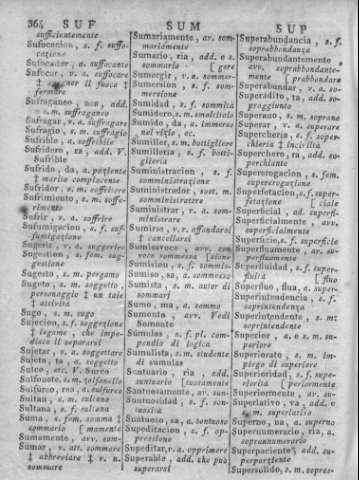 364 SUF
SUM
SUP
sufficientemente
Sufocacion, s. f. suffo-
cazione
Sufocador, a. suffocante
Sufocar, v. a. suffocare
il fuoco ‡
fermare
Sufraganeo, add.
suffraganeo
Sufragar, v. a. suffragare
Sufragio, s. m. suffragio
Sufrible, a. soffribile
Sufridero, ra, add. V.
Sufrible
Sufrido, da, a. paziente
‡ marito compiacente
Sufridor, s. m. soffritore
Sufrimiento, s. m. soffe-
rimento
Sufrir, v. a. soffrire
Sufumigacion, s. f. suf-
fumigazione
Sugerir, v. a. suggerire
Sugestion, s. fem. sug-
gestione
Sugesto, s. m. pergamo
Sugeto, s. m. soggetto,
personaggio ‡ un tale
‡ attività
Sugo, s. m. sugo
Sujecion, s. f. soggezione
‡ legame, che impe-
disce il separarsi
Sujetar, v. a. soggettare
Sujeto, ta, a. soggetto
Sulco, etc. V. Surco
Sulfonete, s. m. zolfanello
Sulfureo, rea, a. sulfureo
Sultan, s. m. sultano
Sultana, s. f. sultana
Suma, s. fem. somma ‡
sommario [momente
Sumamente, avv. som-
Sumar, v. att. sommare
‡ abbreviare ‡ v. n.
sommare
Sumariamente, av. som-
mariamente
Sumario, ria, add. e s.
sommario [gere
Sumergir, v. a. sommer-
Sumersion, s. f. som-
mersione
Sumidad, s. f. sommità
Sumidero, s. m. smaltitoio
Sumido, da, a. immerso
nel vizio, ec.
Sumiller, s. m. bottigliere
Sumilleria, s. f. botti-
glieria
Suministracion, s. f.
somministrazione
Suministrador, sost. m.
somministratore
Suministrar, v. a. som-
ministrare
Sumirse, v. r. affondarsi
‡ cancellarsi
Sumisavoce, avv. con
voce sommessa [sione
Sumision, s. f. sommis-
Sumiso, sa, a. sommesso
Sumista, s. m. autor di
sommarj
Sumo, ma, a. sommo
Sumonte, avv. Vedi
Súmulas, s. f. pl. com-
pendio di logica
Sumulista, s. m. studente
di sumulas
Suntuario, ria, add.
suntuario [tuosamente
Suntuosamente, av. sun-
Suntuosidad, s. f. sun-
tuosità
Suntuoso, sa, a. sontuoso
Supeditacion, s. f. op-
pressione
Supeditar, v. a. opprimere
Superable, add. che può
superarsi
Superabundancia, s. f.
soprabbondanza
Superabundantemente
avv. soprabbondante-
mente [prabbondare
Superabundar, v. a. so-
Superádito, ta, add. so-
praggiunto
Superano, s. m. soprano
Superar, v. a. superare
Supercheria, s. f. super-
chieria ‡ inciviltà
Superchero, ra, add. so-
perchiante
Supererogacion, s. fem.
supererogazione
Superfetacion, s. f. super-
fetazione [ciale
Superficial, ad. superfi-
Superficialmente, avv.
superficialmente
Superficie, s. f. superficie
Superfluamente, av. su-
perfluamente
Superfluidad, s. f. super-
fluità [fluo
Superfluo, flua, a. super-
Superintendencia, s. f.
soprintendenza
Superintendente, s. m.
soprintendente
Superior, a. e s. m. su-
periore
Superiorato, s. m. im-
piego di superiore
Superioridad, s. f. supe-
riorità [periormente
Superiormente, av. su-
Superlativo, va, add. e
s. m. superlativo
Superno, na, a. superno
Supernumerario, ria, a.
soprannumerario
Superpaciente, add. su-
perparziente
Supersolido, s. m. sopres-